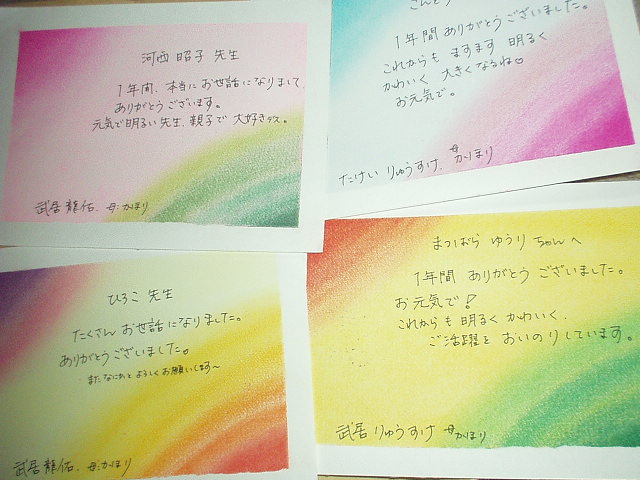 河西 昭子 先生
1年間、本当に お世話に なりまして
ありがとう ございます。
元気で 明るい 先生、親子で 大好きデス。
武居 龍佑、母:かほり
1年間 ありがとう ございました。
これからも ますます 明るく
かわいく 大きく なるね
お元気で。
たけい りゅうすけ、母 かほり
ひろこ 先生
たくさん お世話に なりました。
ありがとう ございました。
また なにかと よろしく お願いします〜
武居 龍佑、母:かほり
まつばら ゆうり ちゃんへ
1年間 ありがとう ございました。
お元気で!
これからも 明るく かわいく、
ご活躍を おいのりしています。
武居 りゅうすけ 母 かほり